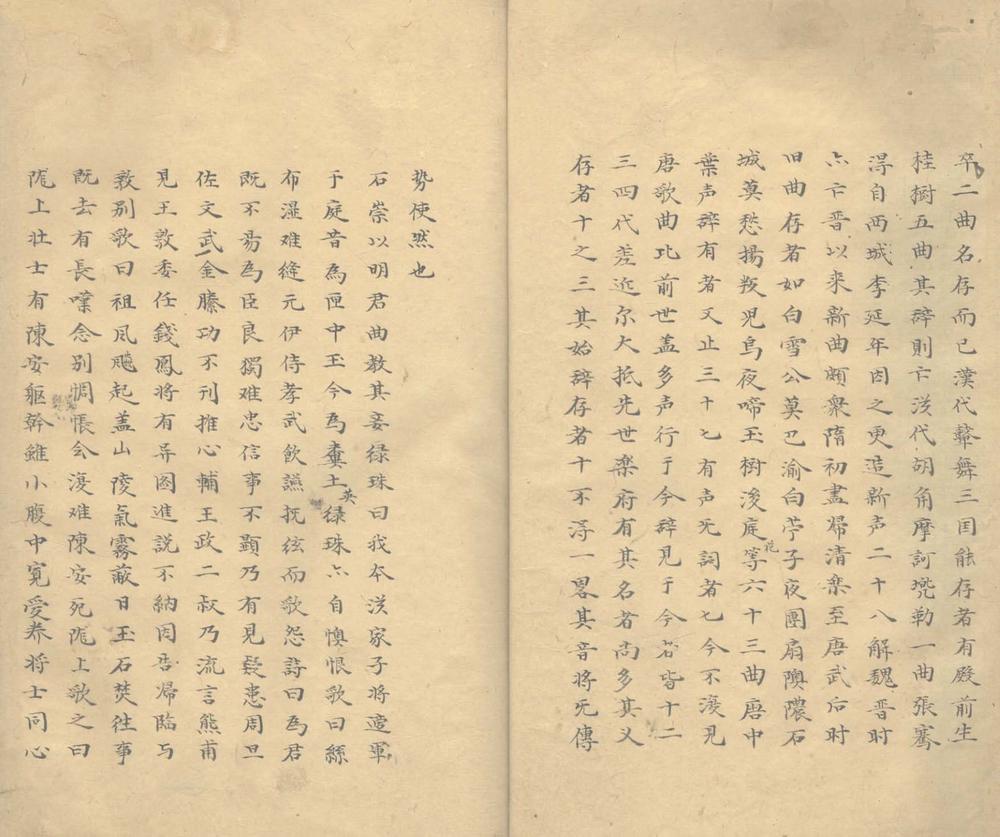 卒二曲名存而已漢代鞞舞三国能存者有殿前生
桂樹五曲其辞則亡汉代胡角摩訶兠勒一曲張騫
淂自西域李延年因之更造新声二十八解魏晋时
亦亡晋以来新曲頗衆隋初盡歸清楽至唐武后时
旧曲存者如白雪公莫巴渝白苧子夜團扇隩𨼆石
城莫愁揚叛児烏夜啼玉樹後庭花等六十三曲唐中
葉声辞有者又止三十七有声无詞者七今不復見
唐歌曲比前世盖多声行于今辞見于今者皆十二
三四代差近尔大抵先世楽府有其名者尚多其义
存者十之三其始辞存者十不淂一畧其音将无傳
势使然也
石崇以明君曲教其妾緑珠曰我本汉家子将適單
于庭昔為匣中玉今為糞土英緑珠亦自懊恨歌曰絲
布澀难縫元伊侍孝武飲讌抚絃而歌怨詩曰為君
既不昜為臣良獨难忠信事不顯乃有見疑患周旦
佐文武金縢功不刊推心輔王政二叔乃流言熊甫
見王敦委任錢鳳将有异图進説不納因告歸臨与
敦别歌曰祖风飈起盖山陵氣霧蔽日玉石焚往事
既去有長嘆念别惆悵会復难陳安死隴上歌之曰
隴上壮士有陳安軀幹雖小腹中寛愛养将士同心